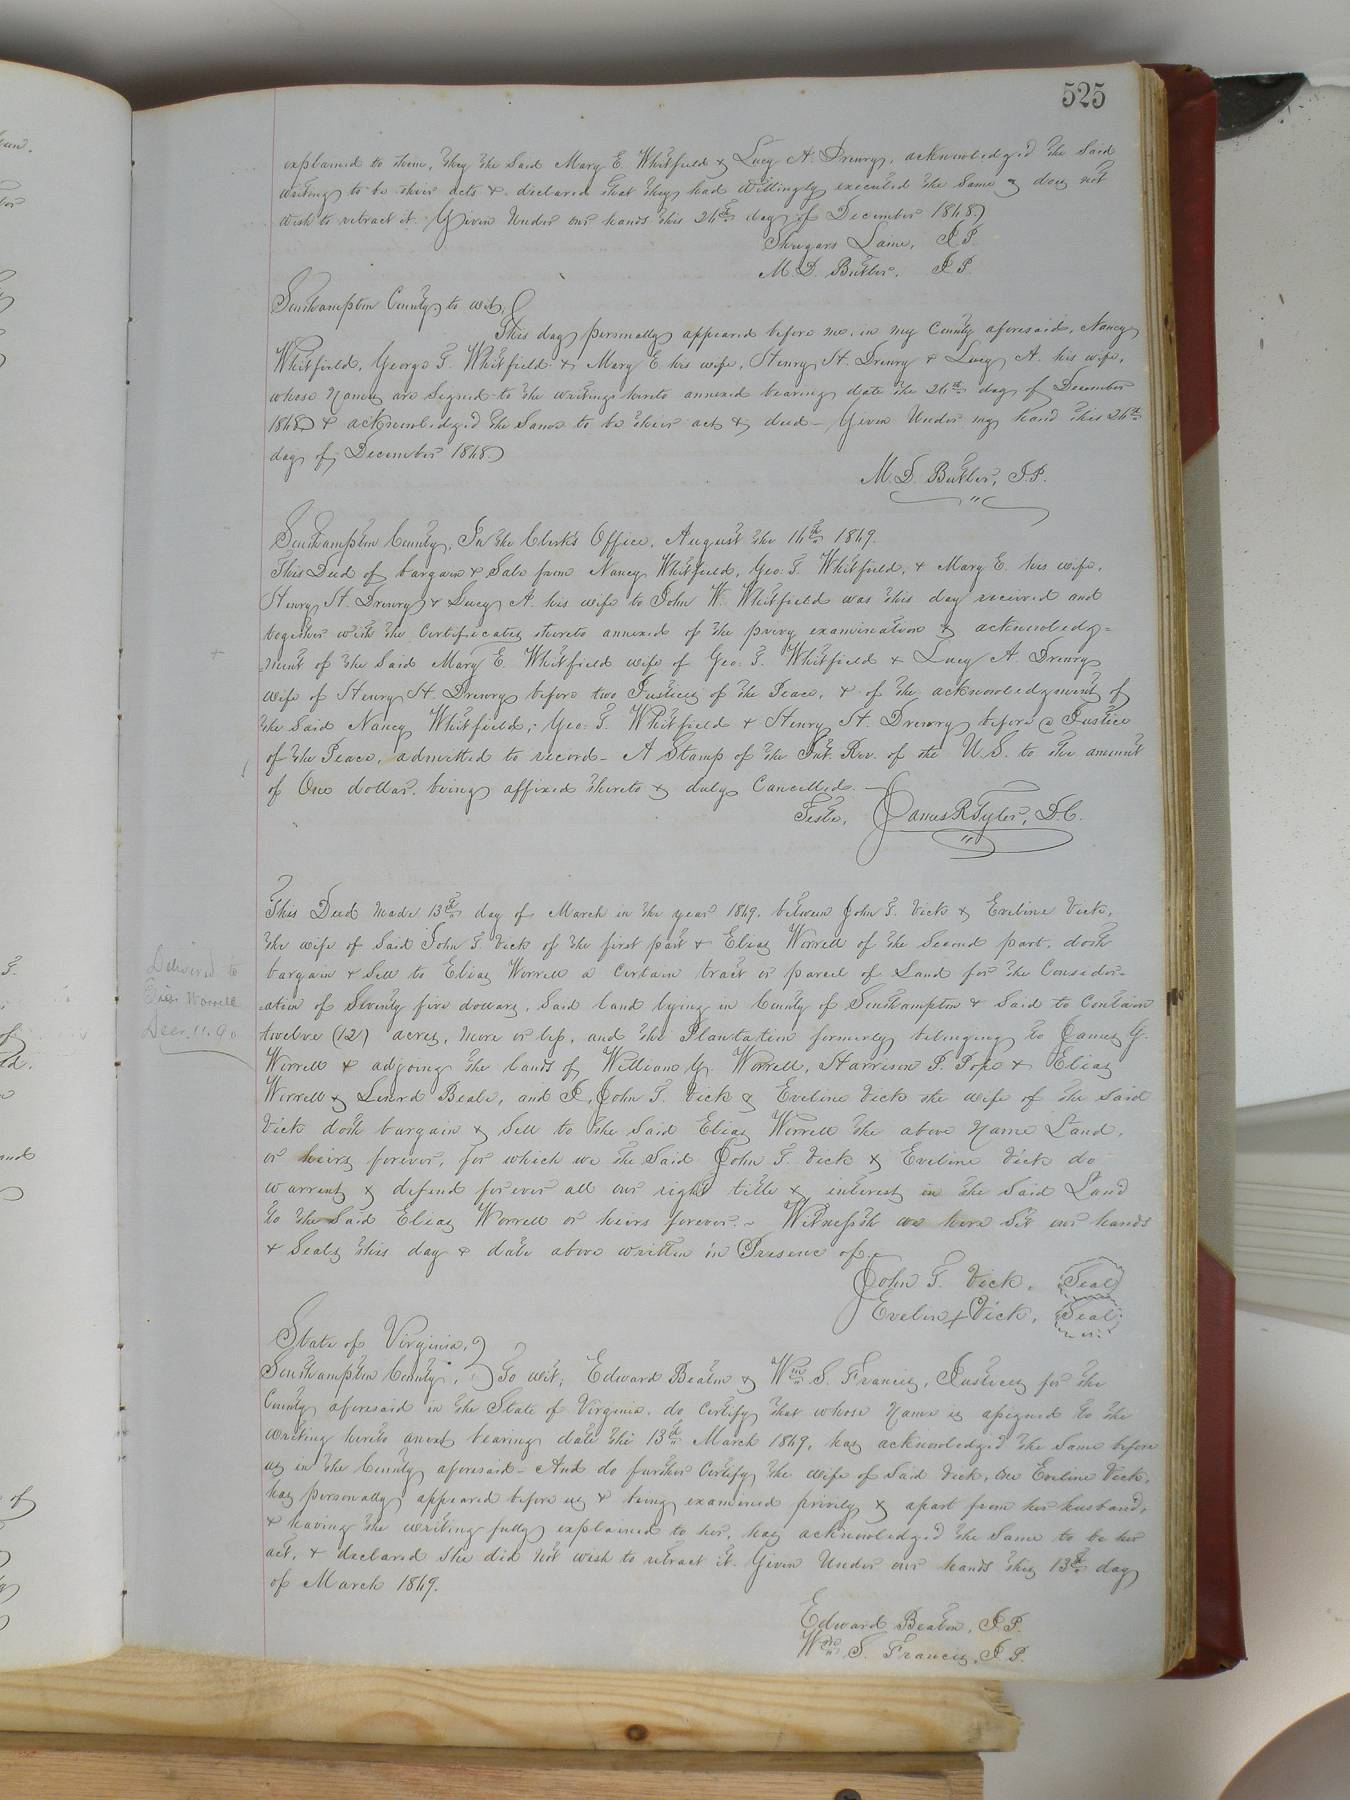 525
explained to them, they the Said Mary E. Whitfield & Lucy A. Drewry, acknowledged the Said
writing to be their acts & declared that they had Willingly executed the Same & does not
wish to retract it. Given Under our hands this 26th day of December 1868
Laine, J.P.
M. D. Butler, J.P.
Southampton County, to wit,
This day personally appeared before me, in my County aforesaid, Nancy
Whitfield, George T. Whitfield & Mary E. his wife, Henry H. Drewry & Lucy A. his wife,
whose Names are Signed to the writings hereto annexed bearing date the 26th day of December
1868 & acknowledged the Same to be their act & deed – Given Under my hand this 26th
day of December 1868
M. D. Butler, J.P.
Southampton County, In the Clerk's Office, August the 16th 1869.
This Deed of bargain & Sale from Nancy Whitfield, Geo. T. Whitfield, & Mary E. his wife,
Henry H. Drewry & Lucy A. his wife to John W. Whitfield was this day received and
together with the Certificates thereto annexed of the privy examination & acknowledg=
ment of the Said Mary E. Whitfield wife of Geo. T. Whitfield & Lucy A. Drewry
wife of Henry H. Drewry before two Justices of the Peace, & of the acknowledgment of
the Said Nancy Whitfield, Geo. T. Whitfield & Henry H. Drewry before a Justice
of the Peace, admitted to record – A Stamp of the Int. Rev. of the U.S. to the amount
of One dollar being affixed thereto & duly Cancelled.
Teste, James R Tyler, D.C.
This Deed Made 13th day of March in the year 1869, between John T. Vick & Eveline Vick,
the wife of Said John T Vick of the first part & Elias Worrell of the Second part, doth
Delivered to
bargain & Sell to Elias Worrell a Certain tract or parcel of Land for the Consider-
Elias Worrell
ation of Seventy five dollars, Said land lying in County of Southampton & Said to Contain
Dec. 11. 90
twelve (12) acres, More or less, and the Plantation formerly belonging to James G.
Worrell & adjoing the lands of William G. Worrell, Harrison P. Pope & Elias
Worrell & Beale, and I, John T. Vick & Eveline Vick the wife of the Said
Vick doth bargain & Sell to the Said Elias Worrell the above Name Land,
or heirs forever, for which we the Said John T. Vick & Eveline Vick do
warrent & defend forever all our right title & interest in the Said Land
to the Said Elias Worrell or heirs forever. – Witnesseth we here Set our hands
& Seals this day & date above written in Presence of
John T. Vick. Seal
Evelin + Vick, Seal
State of Virginia,
Southampton County, To wit, Edward Beaton & Wm S. Francis, Justices for the
County aforesaid in the State of Virginia, do Certify that whose Name is assigned to the
writing hereto anext bearing date the 13th March 1869, has acknowledged the Same before
us in the County aforesaid – And do further Certify the wife of Said Vick, Eveline Vick,
has personally appeared before us & being examined privily & apart from her husband,
& having the writing fully explained to her, has acknowledged the Same to be her
act, & declared She did not wish to retract it. Given Under our hands this 13th day
of March 1869.
Edward Beaton, J.P.
Wm S. Francis, J.P.